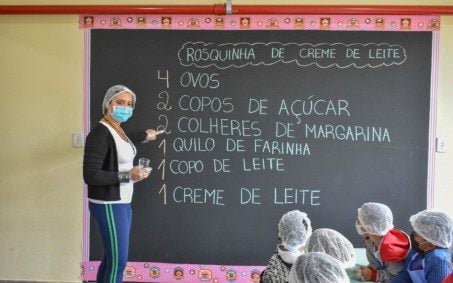 ROSQUINHA DE CREME DE LEITE
4 OVOS
2 COPOS DE AÇÚCAR
2 COLHERES DE MARGARINA
1 QUILO DE FARINHA
1 COPO DE LEITE
1 CREME DE LEITE